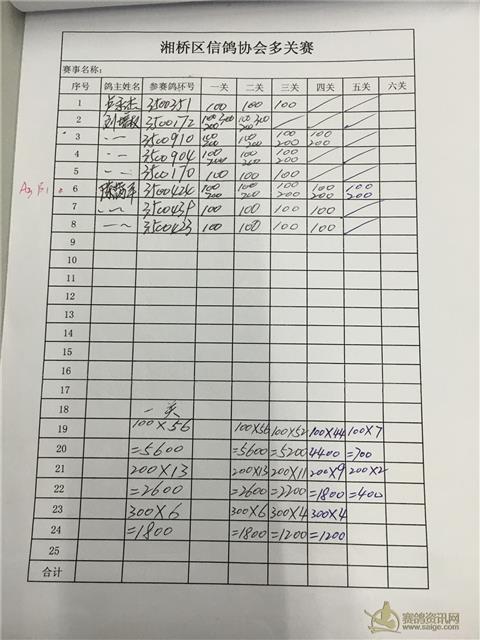 湘桥区信鸽协会多关赛
赛事名称:
序号 鸽主姓名 参赛鸽环号 一关 二关 三关 四关 五关 六关
1 3500351 100 100 100
2 3500172 100 300 200 100 300 200
3 3500910 100 200 100 200 100 200 100 200
4 3500904 100 200 100 200 100 200
5 3500170 100 100 100
6 3500424 100 200 100 200 100 200 100 200 100 200
7 100 100 100 100
8 3500423 100 100 100 100
9
10
11
12
13
14
15
16
17
18 一关
19 100×56 100×56 100×52 100×44 100×7
20 =5600 =5600 =5200 4400 =700
21 200×13 200×13 200×11 200×9 200×2
22 =2600 =2600 =2200 =1800 =400
23 300×6 300×6 300×4 300×4
24 =1800 =1800 =1200 =1200
25
合计
赛鸽资讯网
www.saige.com